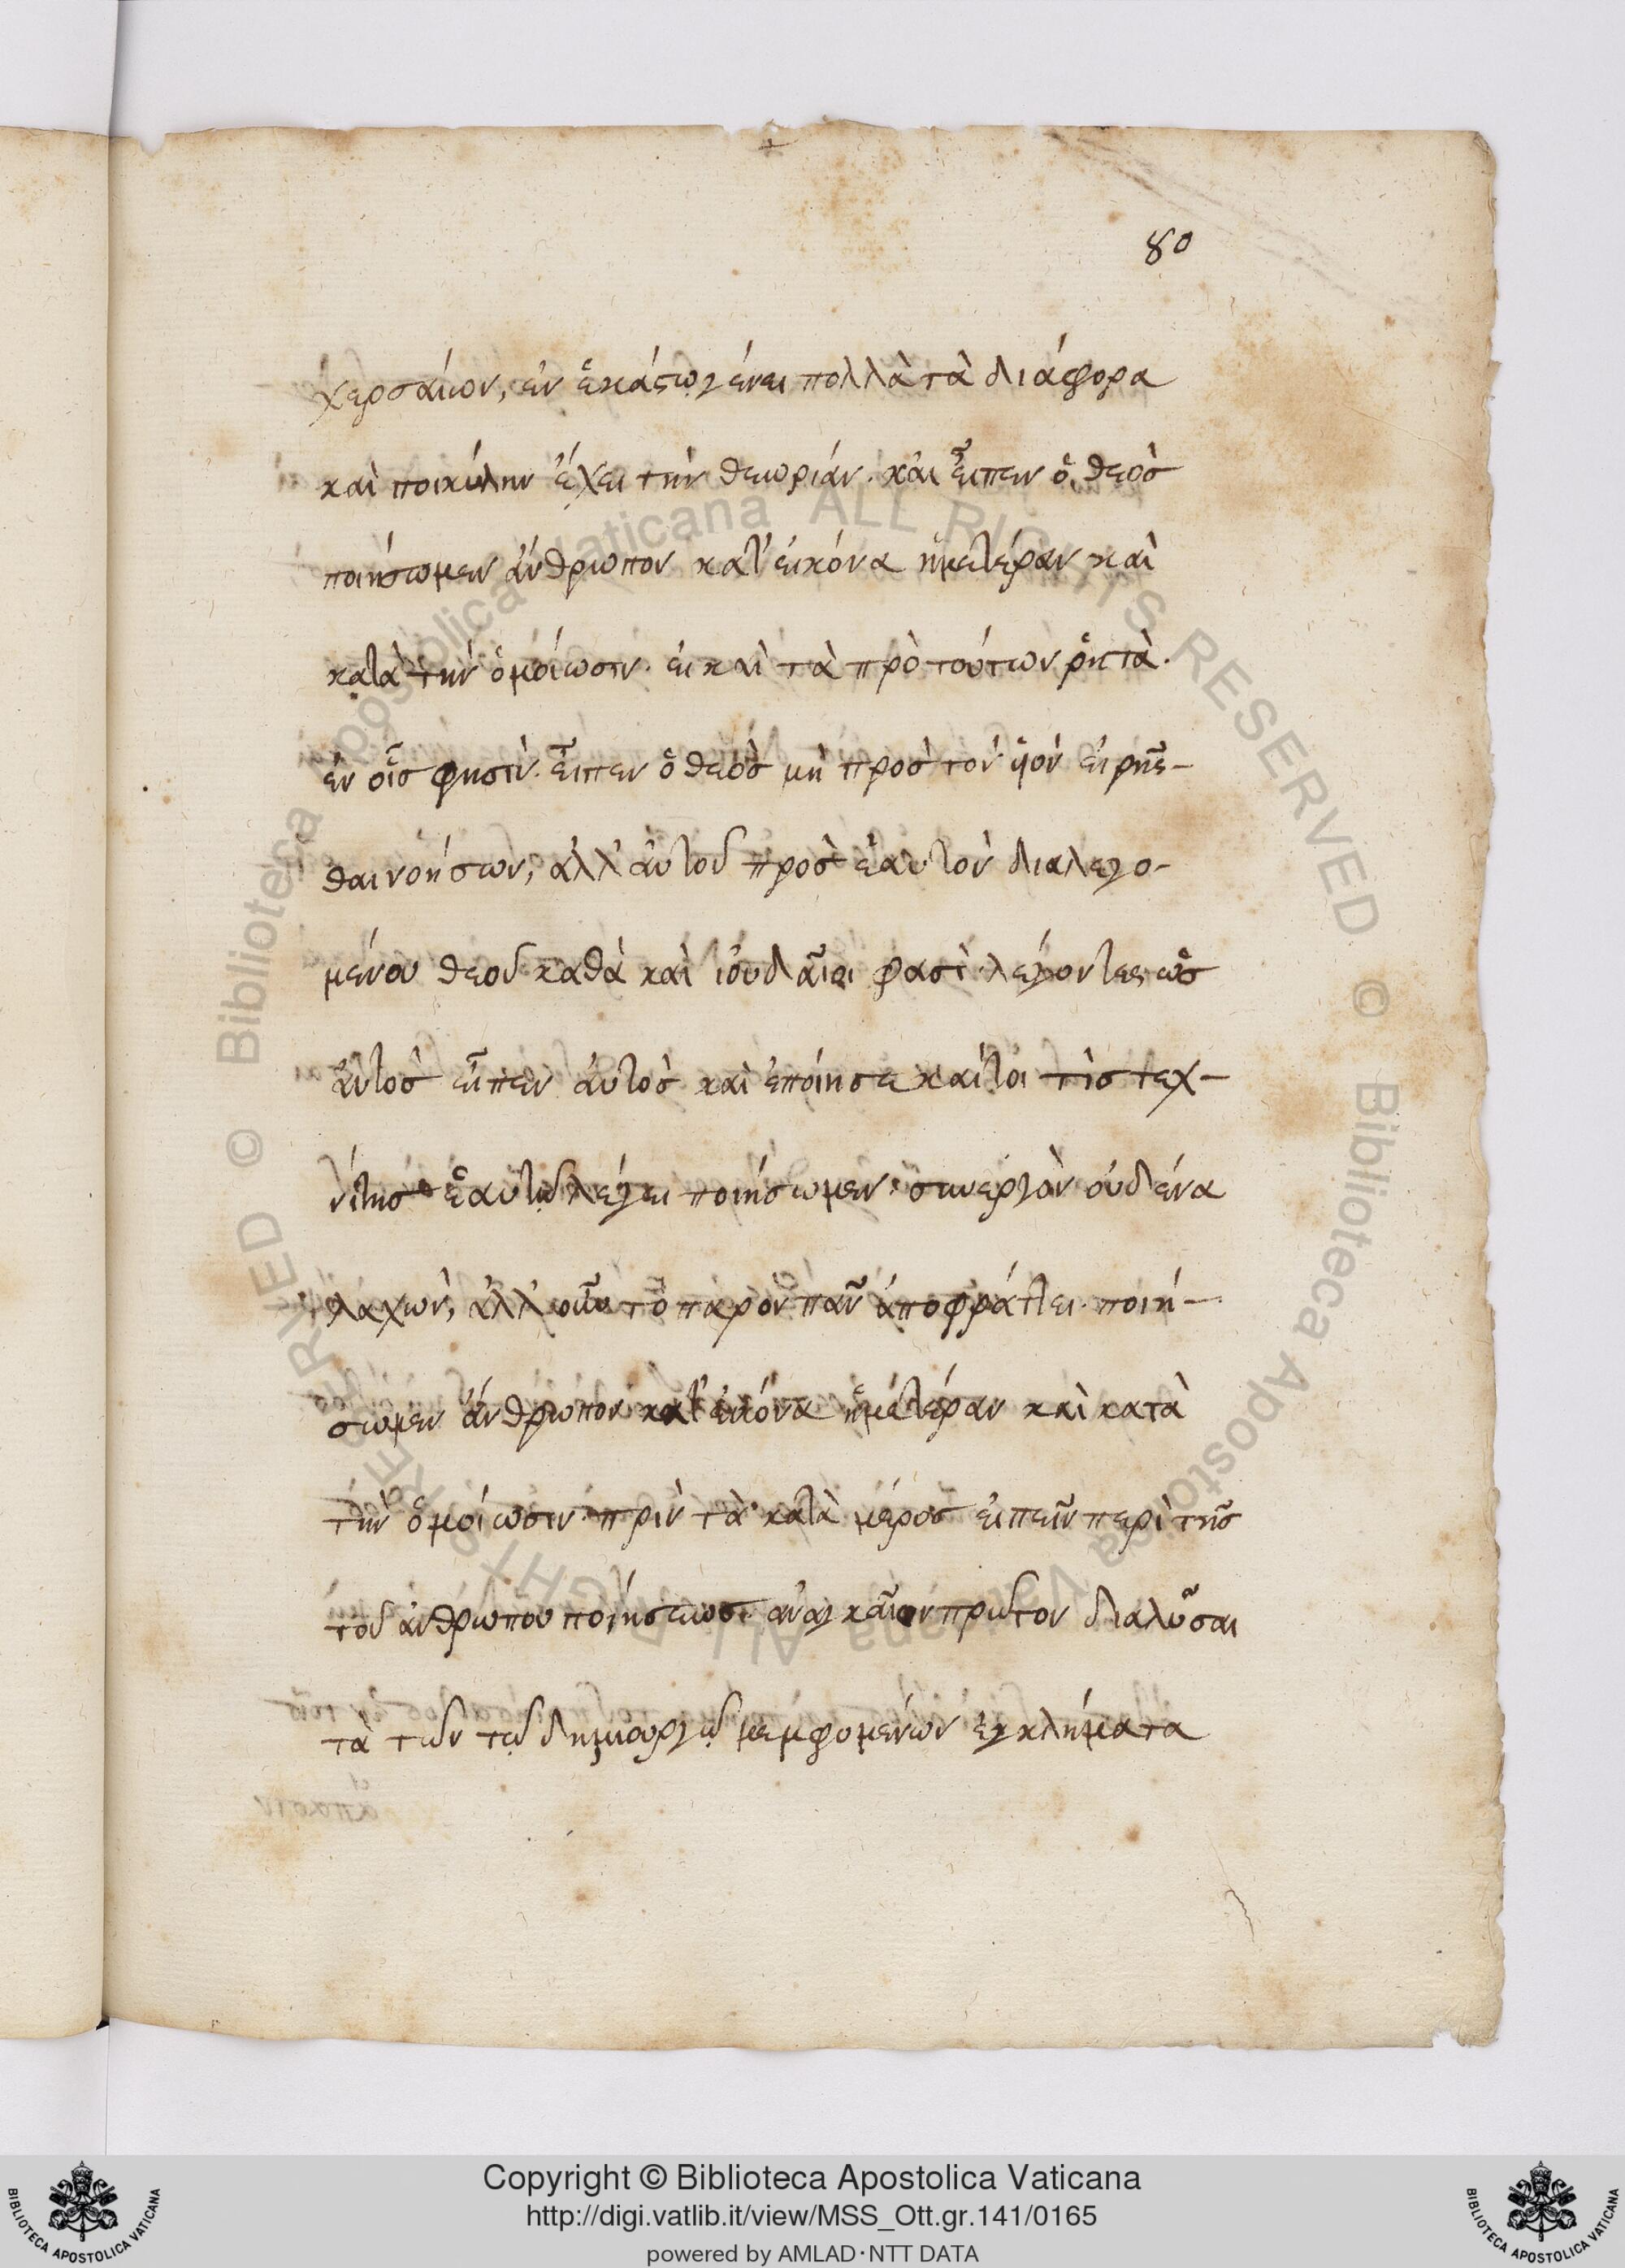 80
χερσαίων, ἐν ἑκάστῳ γένει πολλὰ τὰ διάφορα
καὶ ποικίλην ἔχει τὴν θεωρίαν. καὶ εἶπεν ὁ θεὸς
ποιήσωμεν ἄνθρωπον κατ' εἰκόνα ἡμετέραν καὶ
κατὰ τὴν ὁμοίωσιν. εἰ καὶ τὰ πρὸ τούτων ῥητὰ.
ἐν οἷς φησίν. εἶπεν ὁ θεὸς μὴ πρὸς τὸν υἱὸν εἰρῆσ-
θαι νοήσων, ἀλλ' αὐτοῦ πρὸς ἑαυτὸν διαλεγο-
μένου θεοῦ καθὰ καὶ ἰουδαῖοι φασὶ λέγοντες ὡς
αὐτὸς εἶπεν αὐτὸς καὶ ἐποίησε καίτοι τὶς τεχ-
νίτης ἑαυτῷ λέγει ποιήσωμεν. συνεργὸν οὐδένα
λαχών, ἀλλ' οὖν τὸ παρὸν πᾶν ἀποφράττει. ποιή-
σωμεν ἄνθρωπον κατ' εἰκόνα ἡμετέραν καὶ κατὰ
τὴν ὁμοίωσιν. πρὶν τὰ κατὰ μέρος εἰπεῖν περὶ τῆς
τοῦ ἀνθρώπου ποιήσεως. ἀναγκαῖον πρῶτον διαλῦσαι
τὰ τῶν τῷ δημιουργῷ μεμφομένων ἐγκλήματα
© Biblioteca Apostolica Vaticana ALL RIGHTS RESERVED © Biblioteca Apostolica Vaticana ALL RIGHTS RESERVED
Copyright © Biblioteca Apostolica Vaticana
http://digi.vatlib.it/view/MSS_Ott.gr.141/0165
powered by AMLAD·NTT DATA
BIBLIOTECA APOSTOLICA VATICANA
BIBLIOTECA APOSTOLICA VATICANA